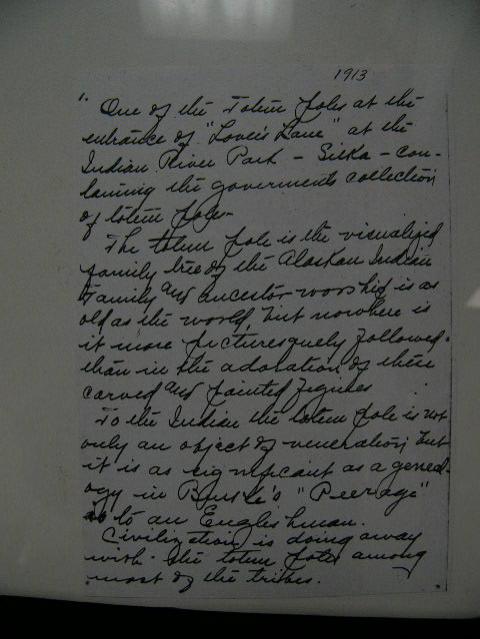 1913
1. One of the Totem poles at the
entrance of "Lover's Lane" at the
Indian River Park - Sitka - con-
taining the goverments collection
of totem poles-
The totem pole is the visualized
family tree of the Alaskan Indian
Family and ancestor worship is as
old as the world, but nowhere is
it more picturesquely followed
than in the adoration of these
carved and painted figures
To the Indian the totem pole is not
only an object of veneration but
it is as significant as a geneal-
ogy in Burke's "Peerage"
to an Englishman.
Civilization is doing away
with the totem poles among
most of the tribes.